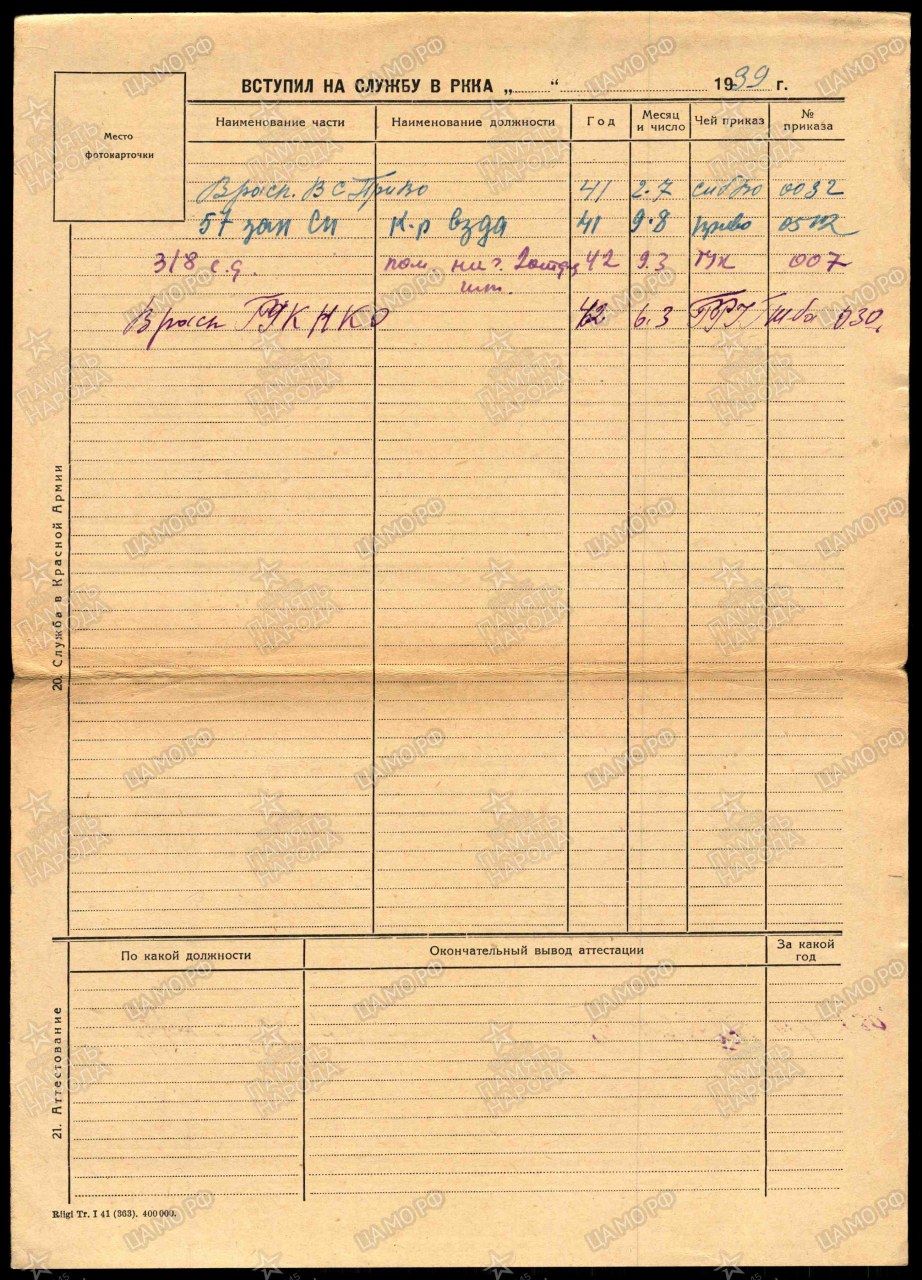 ВСТУПИЛ НА СЛУЖБУ В РККА „ “ 1939 г.
Место фотокарточки
Наименование части Наименование должности Год Месяц и число Чей приказ № приказа
В расп. ВС 41 2.7 сибво 0032
57 зап сп к-р взда 41 9.8 приво
318 с.д. пом. нач. 2 отд. 42 9.3 007
шт.
В расп ГУК НКО 42 6.3 030
20. Служба в Красной Армии
По какой должности Окончательный вывод аттестации За какой год
21. Аттестование
Riigi Tr. I 41 (363). 400000.
ЦАМО.РФ
ПАМЯТЬ НАРОДА